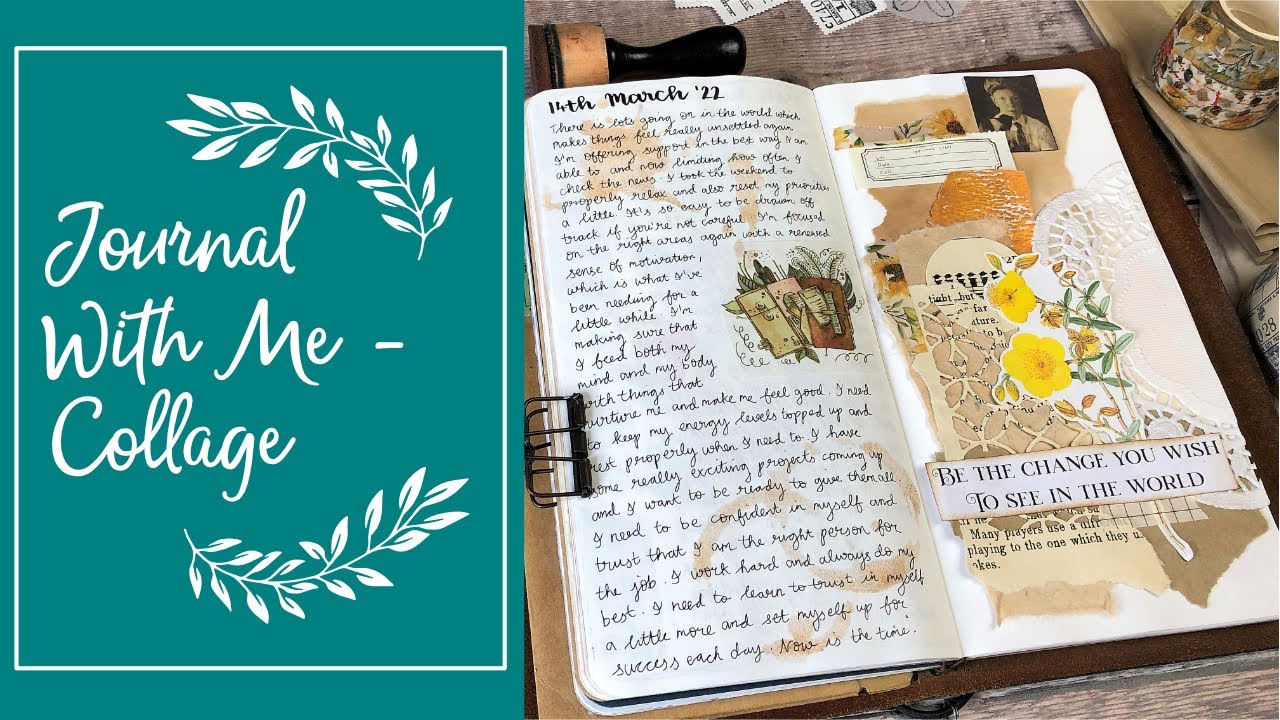 Journal
With Me -
Collage
14th March '22
There is lots going on in the world which
makes things feel really unsettled again.
I'm offering support in the best way I am
able to and now limiting how often I
check the news. I took the weekend to
properly relax and also reset my priorities
a little. It's so easy to be drawn off
track if you're not careful. I'm focused
on the right areas again with a renewed
sense of motivation,
which is what I've
been needing for a
little while. I'm
making sure that
I feed both my
mind and my body
with things that
nurture me and make me feel good. I need
to keep my energy levels topped up and
rest properly when I need to. I have
some really exciting projects coming up
and I want to be ready to give them all
I need to be confident in myself and
trust that I am the right person for
the job. I work hard and always do my
best. I need to learn to trust in myself
a little more and set myself up for
success each day. Now is the time.
tight, but
far
ture.
to b
BE THE CHANGE YOU WISH
TO SEE IN THE WORLD
Many players use a diff
playing to the one which they u
okes.